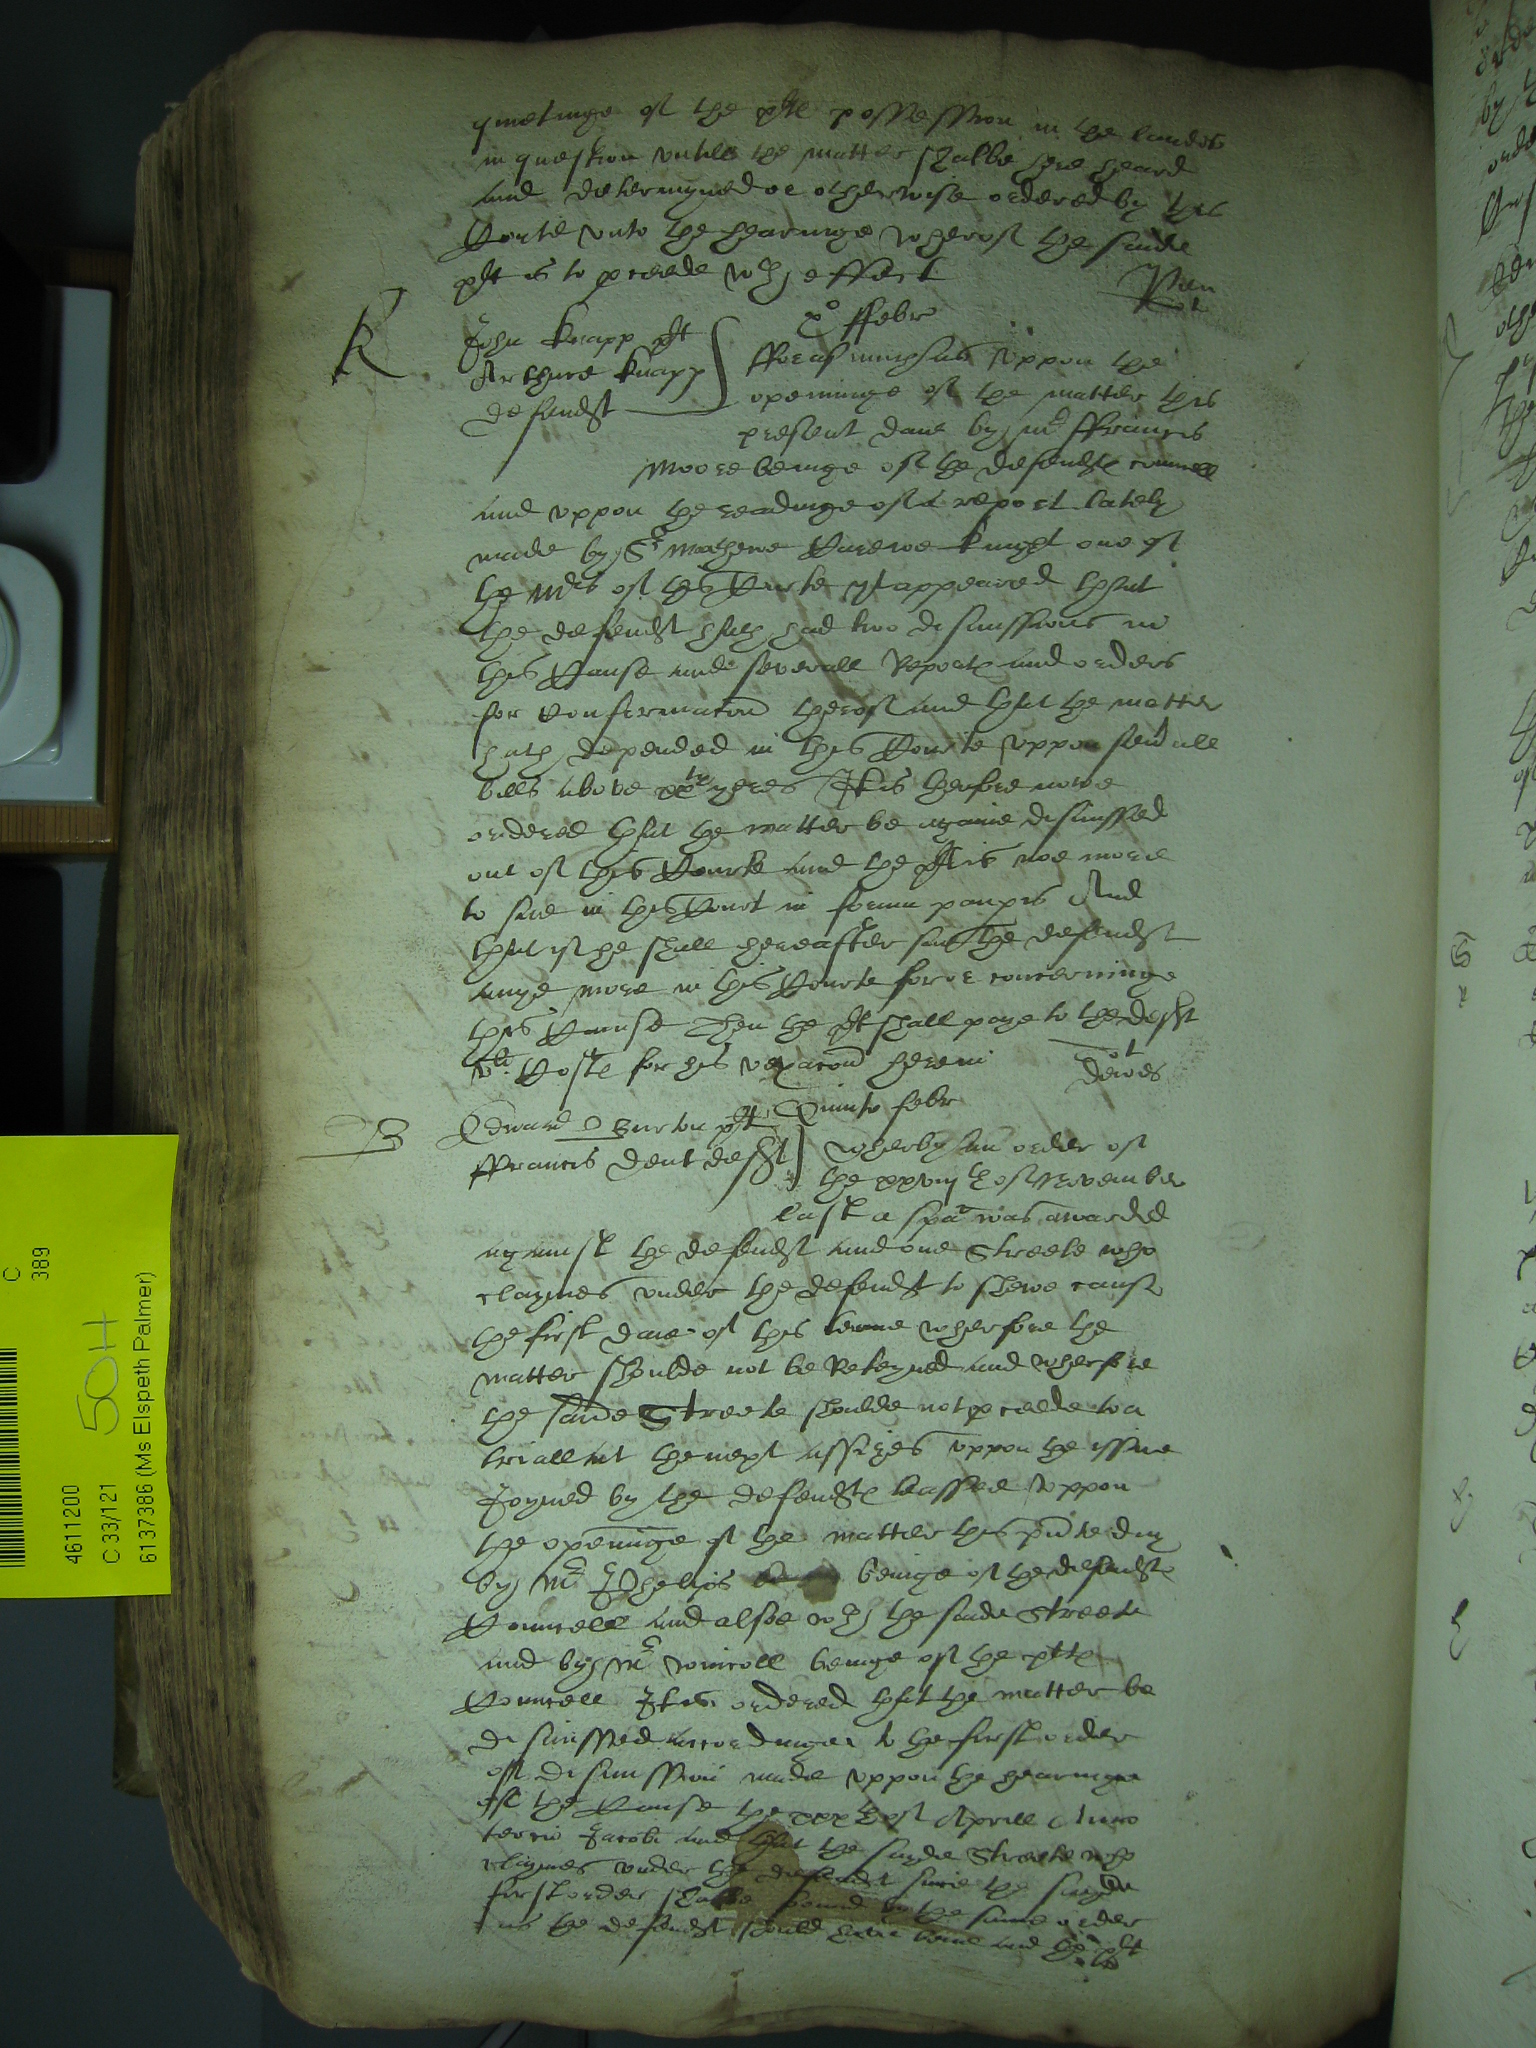 quietinge of the plt possession in the landes
in question untill the matter shalbe here heard
and determyned or otherwise ordered by this
Courte unto the hearinge wherof the saide
plt is to pceede wth effect
xo ffebr
K
John Knapp plt
Arthure Knapp
defendt
fforasmuchas uppon the
openinge of the matter this
present daie by mr ffrancis
Moore beinge of the defendts councell
and uppon the readinge of a report lately
made by Sr Mathewe Carewe knight one of
the Mrs of this Courte yt appeared that
the defendt hath had two dismissions in
this Cause and severall Reports and orders
for Confirmacon therof and that the matter
hath depended in this Courte uppon sevall
bills above yeres It is therfore nowe
ordered that the matter be againe dismissed
out of this Courte and the plt is noe more
to sue in this Court in forma paupis And
that if he shall hereafter sue the defendt
anye more in this Courte for or concerninge
this Cause then the plt shall paye to the deft
vli Costs for his vexacon herein
B
Quinto febr
Edward Burton plt
ffrancis Dent deft
wherby an order of
the xxviijth of November
last a spa was awarded
against the defendt and one Streete who
claymes under the defendt to shewe cause
the first daie of this terme wherfore the
matter shoulde not be Reteyned and wherfore
the saide Streete shoulde not pceede to a
triall at the next assizes uppon the issue
Joyned by the defendts lessee Uppon
the openinge of the matter this pnte day
by Mr Phelips beinge of the defendts
Councell and alsoe wth the saide Streete
and by Mr beinge of the plts
Councell It is ordered that the matter be
dismissed accordinge to the first order
of dismission made uppon the hearinge
of the Cause the xxxth of Aprill Anno
tercio Jacobi and that the sayde Streete who
claymes under the defendt since the sayde
first order shalbe bound by the same order
as the defendt should have bene and the plt
4611200
C 33/121
6137386 (Ms Elspeth Palmer)
50H
C
389